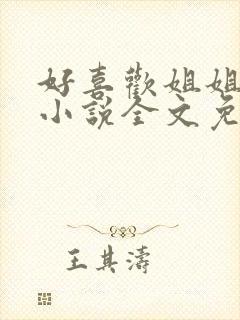 好喜歡姐姐
小說全文免
王其濤